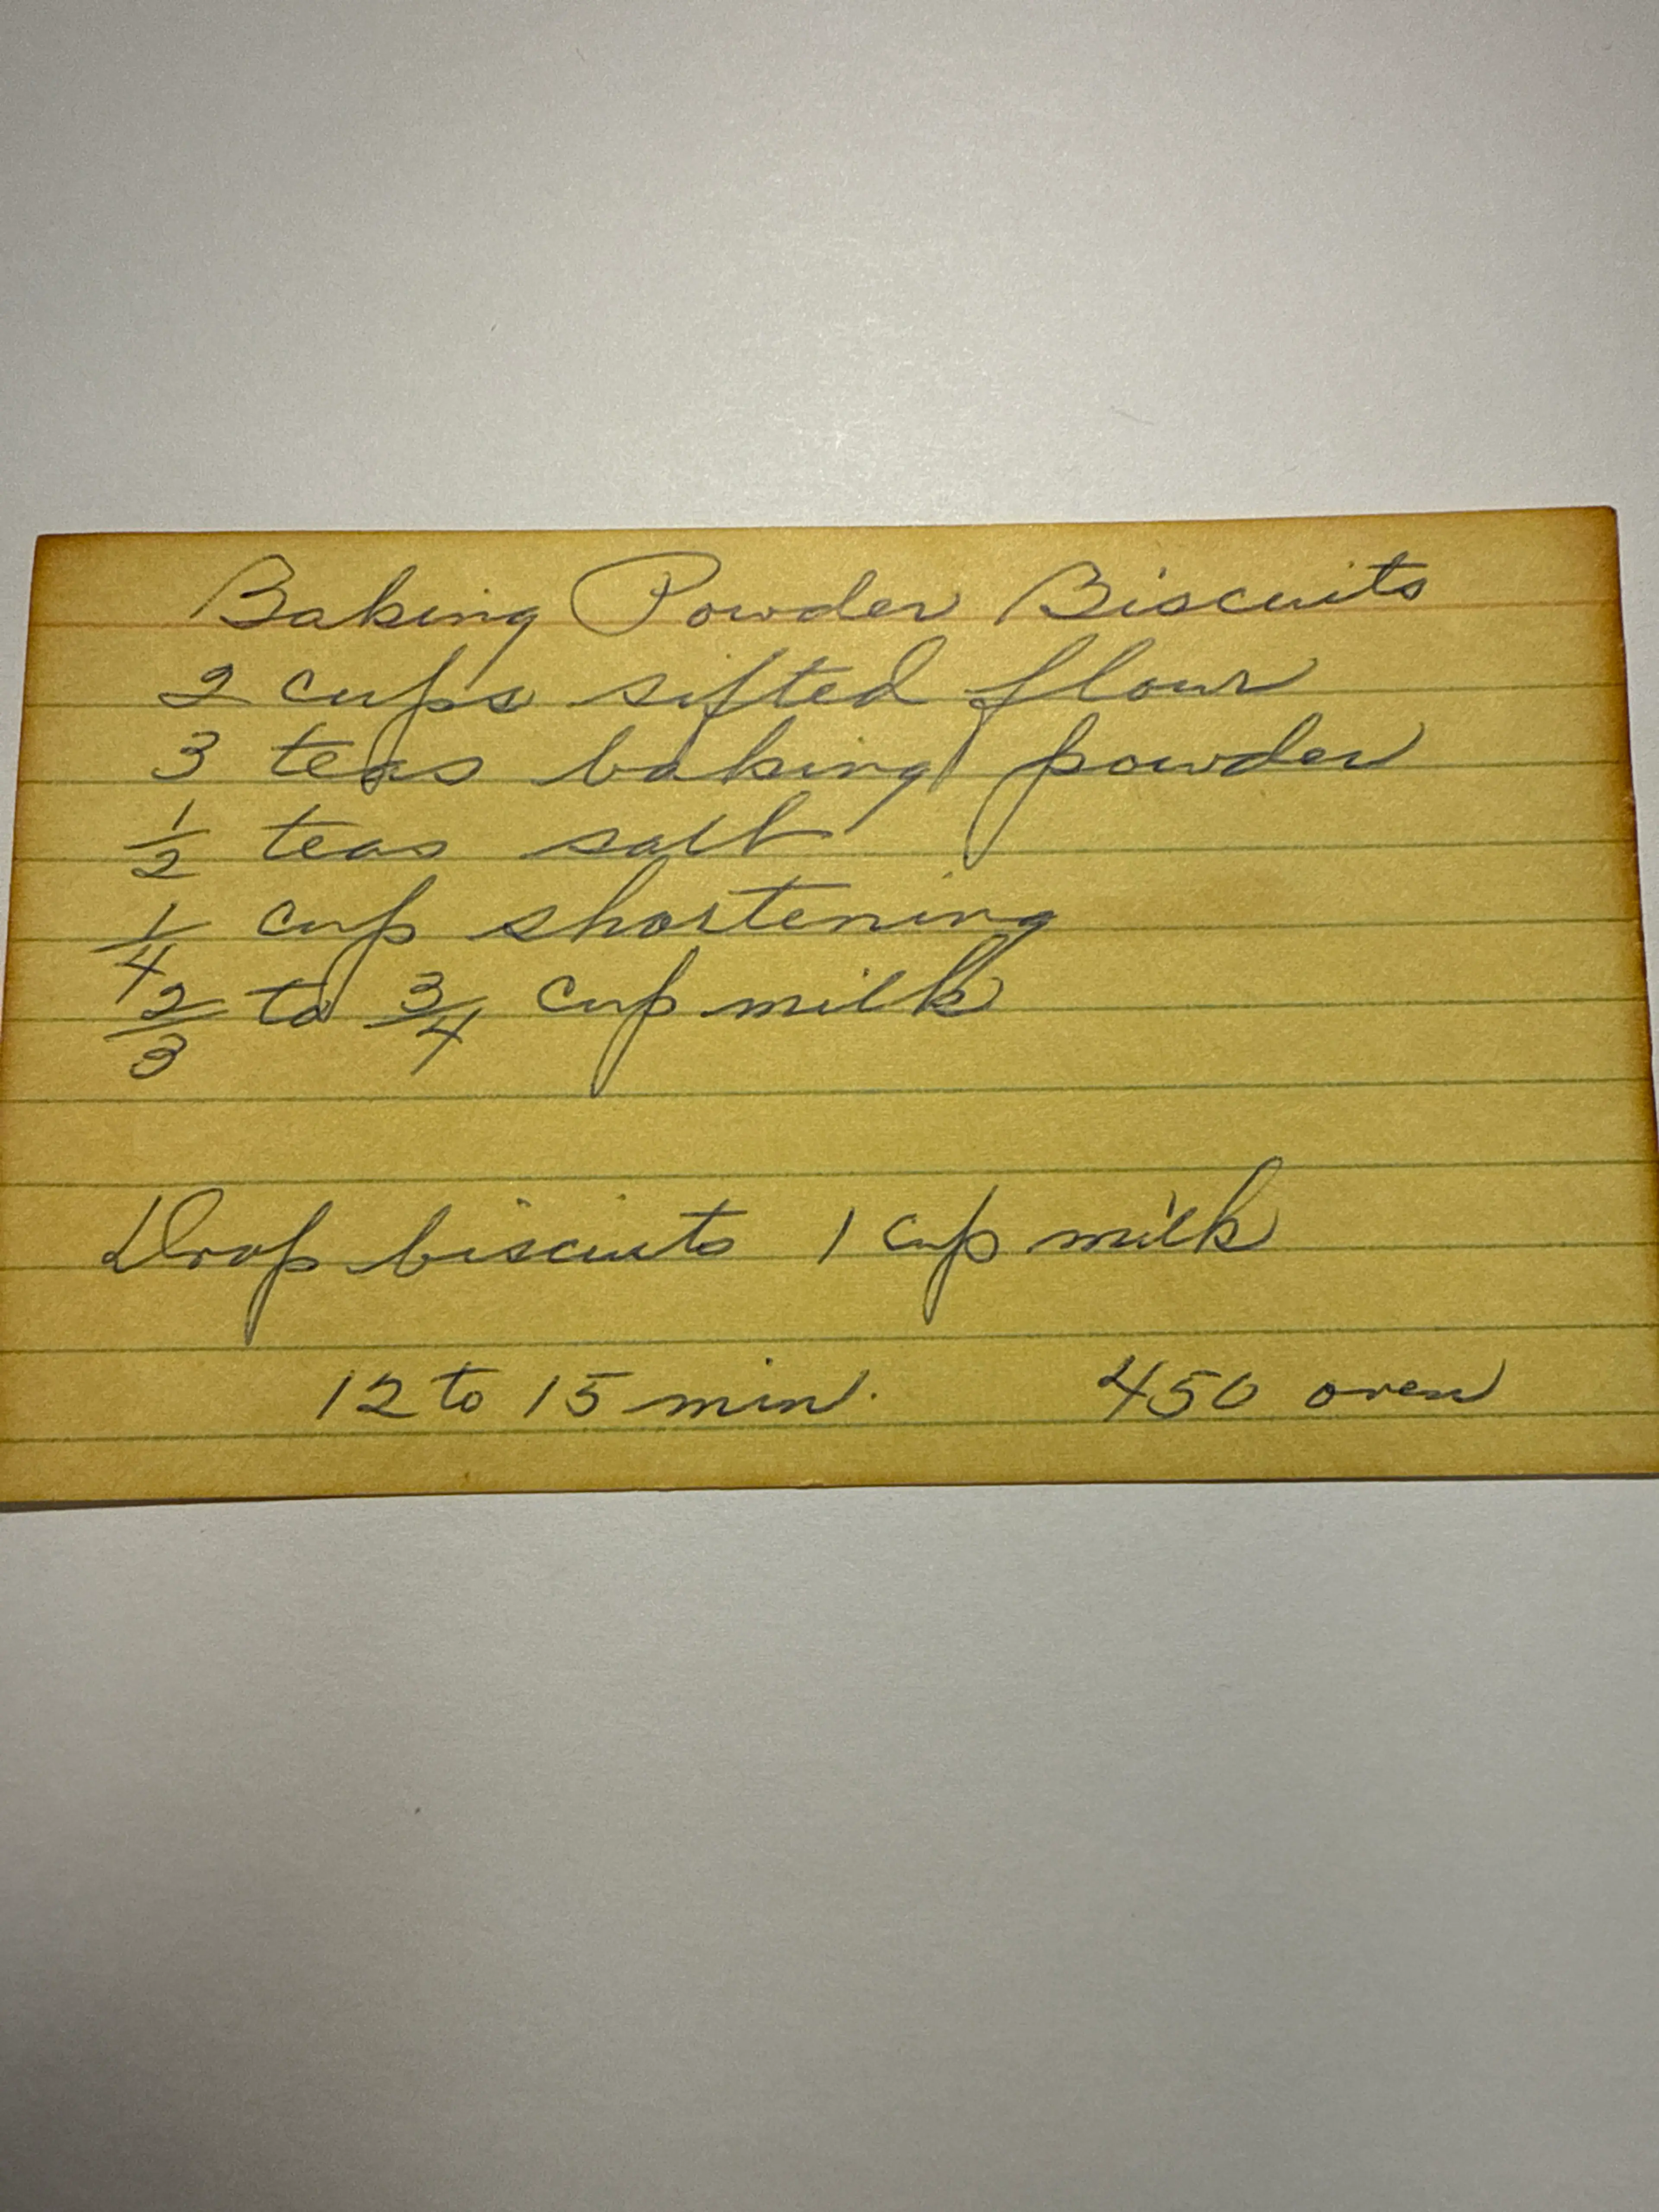 Baking Powder Biscuits
2 cups sifted flour
3 teas baking powder
1/2 teas salt
1/4 cup shortening
2/3 to 3/4 cup milk
Drop biscuits 1 cup milk
12 to 15 min. 450 oven